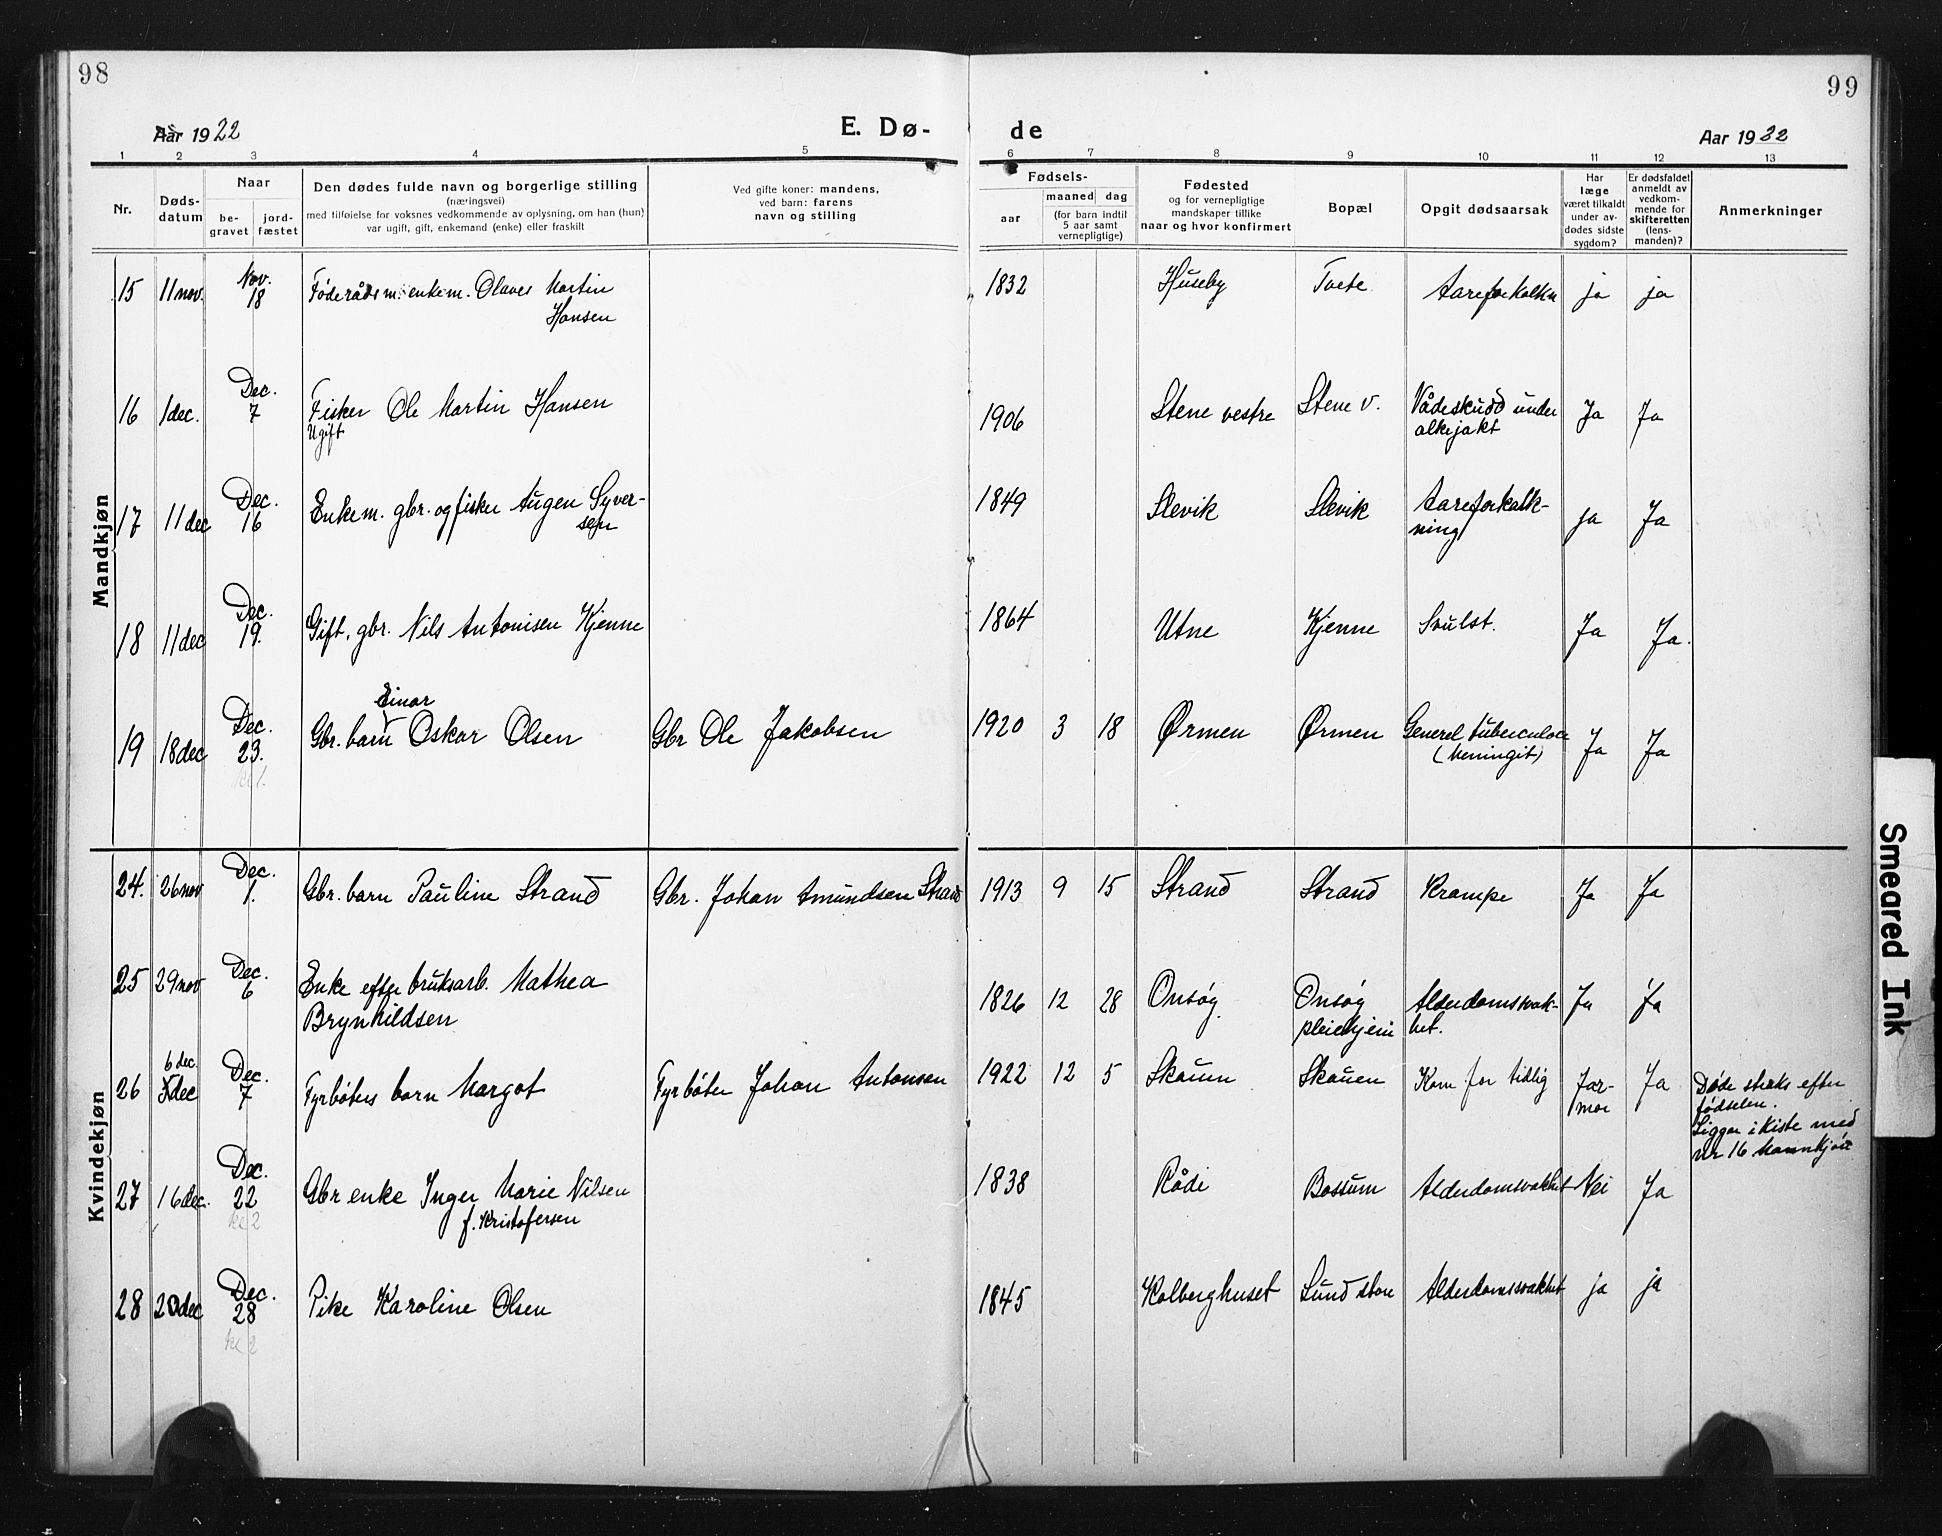 98
99
Aar 1922
E. Dø-
de
Aar 1922
1 2 3 4 5 6 7 8 9 10 11 12 13
Nr.
Døds-
datum
Naar
be-
gravet
jord-
fæstet
Den dødes fulde navn og borgerlige stilling
(næringsvei)
med tilføielse for voksnes vedkommende av oplysning, om han (hun)
var ugift, gift, enkemand (enke) eller fraskilt
Ved gifte koner: mandens,
ved barn: farens
navn og stilling
Fødsels-
aar
maaned dag
(for barn indtil
5 aar samt
vernepligtige)
Fødested
og for vernepligtige
mandskaper tillike
naar og hvor konfirmert
Bopæl
Opgit dødsaarsak
Har
læge
været tilkaldt
under av-
dødes sidste
sygdom?
Er dødsfaldet
anmeldt av
vedkom-
mende for
skifteretten
(lens-
manden)?
Anmerkninger
Mandkjøn
15 11 nov. Nov. 18 Føderådsm. enkem. Olaves Martin
Hansen
1832 Huseby Tvete Aareforkalkn ja ja
16 1 dec. Dec. 7 Fisker Ole Martin Hansen
Ugift
1906 Stene vestre Stene v. Vådeskudd under
alkejakt
Ja Ja
17 11 dec Dec. 16 Enkem. gbr. og fisker Augen Syver-
sen
1849 Slevik Slevik Aareforkalk-
ning
ja Ja
18 11 dec Dec. 19. Gift. gbr. Nils Antonisen Kjenne
1864 Utne Kjenne Svulst. Ja Ja.
19 18 dec Dec. 23. Einar
Gbr. barn Oskar Olsen Gbr Ole Jakobsen
1920 3 18 Ørmen Ørmen Generel tuberculose
(Meningit)
Ja Ja
kl 1.
Kvindekjøn
24. 26 nov Dec. 1. Gbr. barn Pauline Strand Gbr. Johan Amundsen Strand
1913 9 15 Strand Strand Krampe Ja Ja
25 29 nov Dec. 6 Enke efter bruksarb. Mathea
Brynhildsen
1826 12 28 Onsøy Onsøy
pleiehjem
Alderdomssvak-
het.
Ja Ja
6 dec.
26 5 dec Dec. 7 Fyrbøters barn Margot Fyrbøter Johan Antonsen
1922 12 5 Skauen Skauen Kom for tidlig Jor-
mor
Ja Døde straks efter
fødselen.
Ligger i kiste med
nr 16 Mannkjøn
27 16 dec. Dec. 22 Gbr enke Inger Marie Nilsen
f. Kristofersen
1838 Råde Bossum Alderdomsvakhet Nei Ja
kl 2
28 20 dec Dec. 28 Pike Karoline Olsen
1845 Kolberghuset Lund store Alderdomssvakhet ja ja
kl 2
Smeared Ink